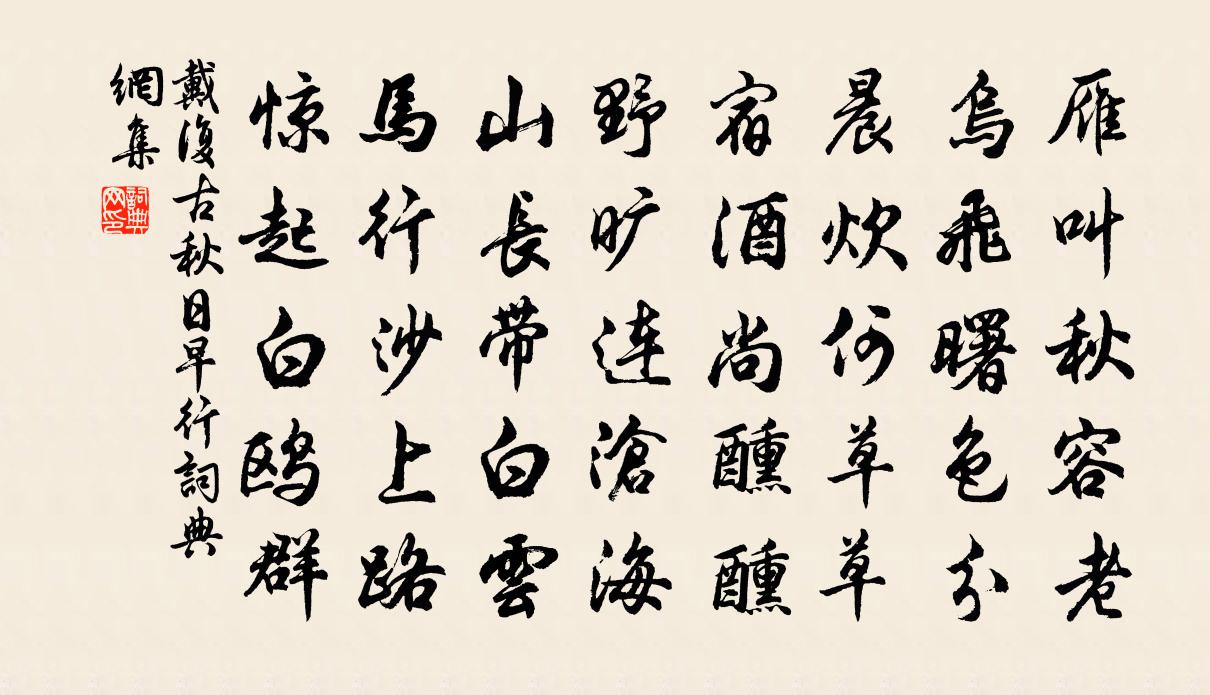 雁叫秋容老
烏飛曙色分
晨炊何草草
宿酒尚醺醺
野旷连滄海
山長帶白雲
馬行沙上路
惊起白鸥群
戴復古秋日早行詞典
網集
詞典
网印